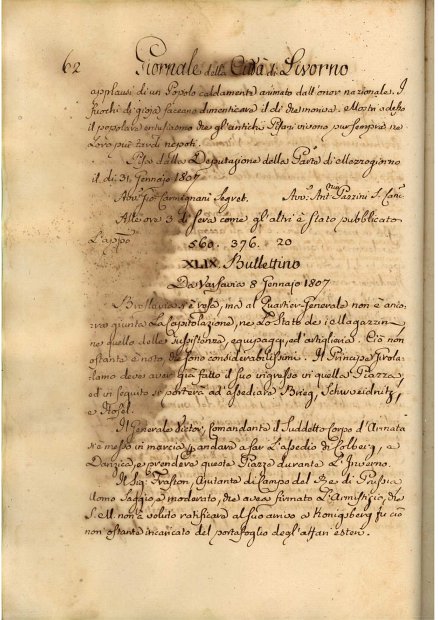 62 Giornale della Città di Livorno
applausi di un Popolo caldamente animato dall'onor nazionale. I
fuochi di gioja faceano dimenticare il di che moriva. Mostrò adesso
il popolare entusiasmo che gl'antichi Pisani vivono pur sempre ne
Loro più tardi nepoti.
Pisa dalla Deputazione della Parte di Mezzogiorno
il di 31 Gennajo 1807
Avv. Gio: Carmignani Segret. Avv. Ant. Paezini
Alle ore 3 di sera come gl'altri è stato pubblicato
L'appo
560. 376. 20
XLIX. Bullettino
Da Varsavia 8 Gennajo 1807
Breslavia s'è resa, ma al Quartier-Generale non è anco-
ra giunta La capitolazione, ne Lo Stato dei Magazzin,
ne quello delle sussistenze, equipaggi, ed artiglieria. Ciò non
ostante è noto, che sono considerabilissimi. Il Principe Girola-
lamo deve aver già fatto il suo ingresso in quella Piazza,
ed in seguito si porterà ad assediare Brieg, Schweidnitz,
e Kosel.
Il Generale Victor, comandante il suddetto corpo d'Armata
s'è messo in marcia p andare a far L'assedio di Colberg, e
Danzica, e prendere queste Piazze durante L'Inverno.
Il Sig. Zraston, Ajutante di campo del Re di Prussia
uomo saggio e moderato, che avea firmato L'Armistizio, che
S. M. non è voluto ratificare al suo arrivo a Konigsberg fu ciò
non ostante incaricato del portafoglio degl'affari esteri.